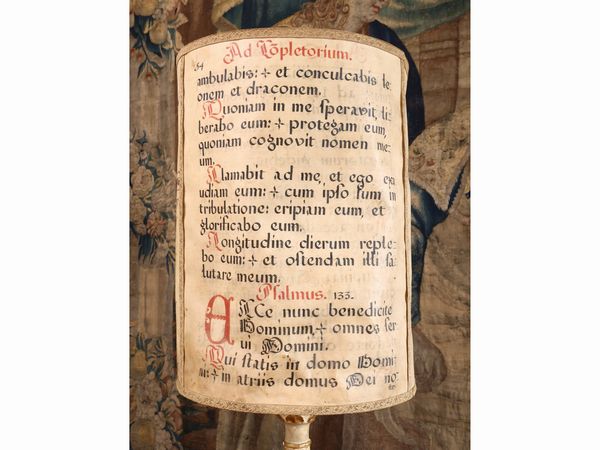 Ad Cõpletorium.
54
ambulabis: + et conculcabis le
onem et draconem.
Quoniam in me speravit, li
berabo eum: + protegam eum,
quoniam cognovit nomen me
um.
Clamabit ad me, et ego exa
udiam eum: + cum ipso sum in
tribulatione: eripiam eum, et
glorificabo eum.
Longitudine dierum reple-
bo eum: + et ostendam illi sa
lutare meum.
Psalmus. 133.
ECce nunc benedicite
Dominum, + omnes ser
vi Domini.
Qui statis in domo Domi
ni: + in atriis domus Dei no